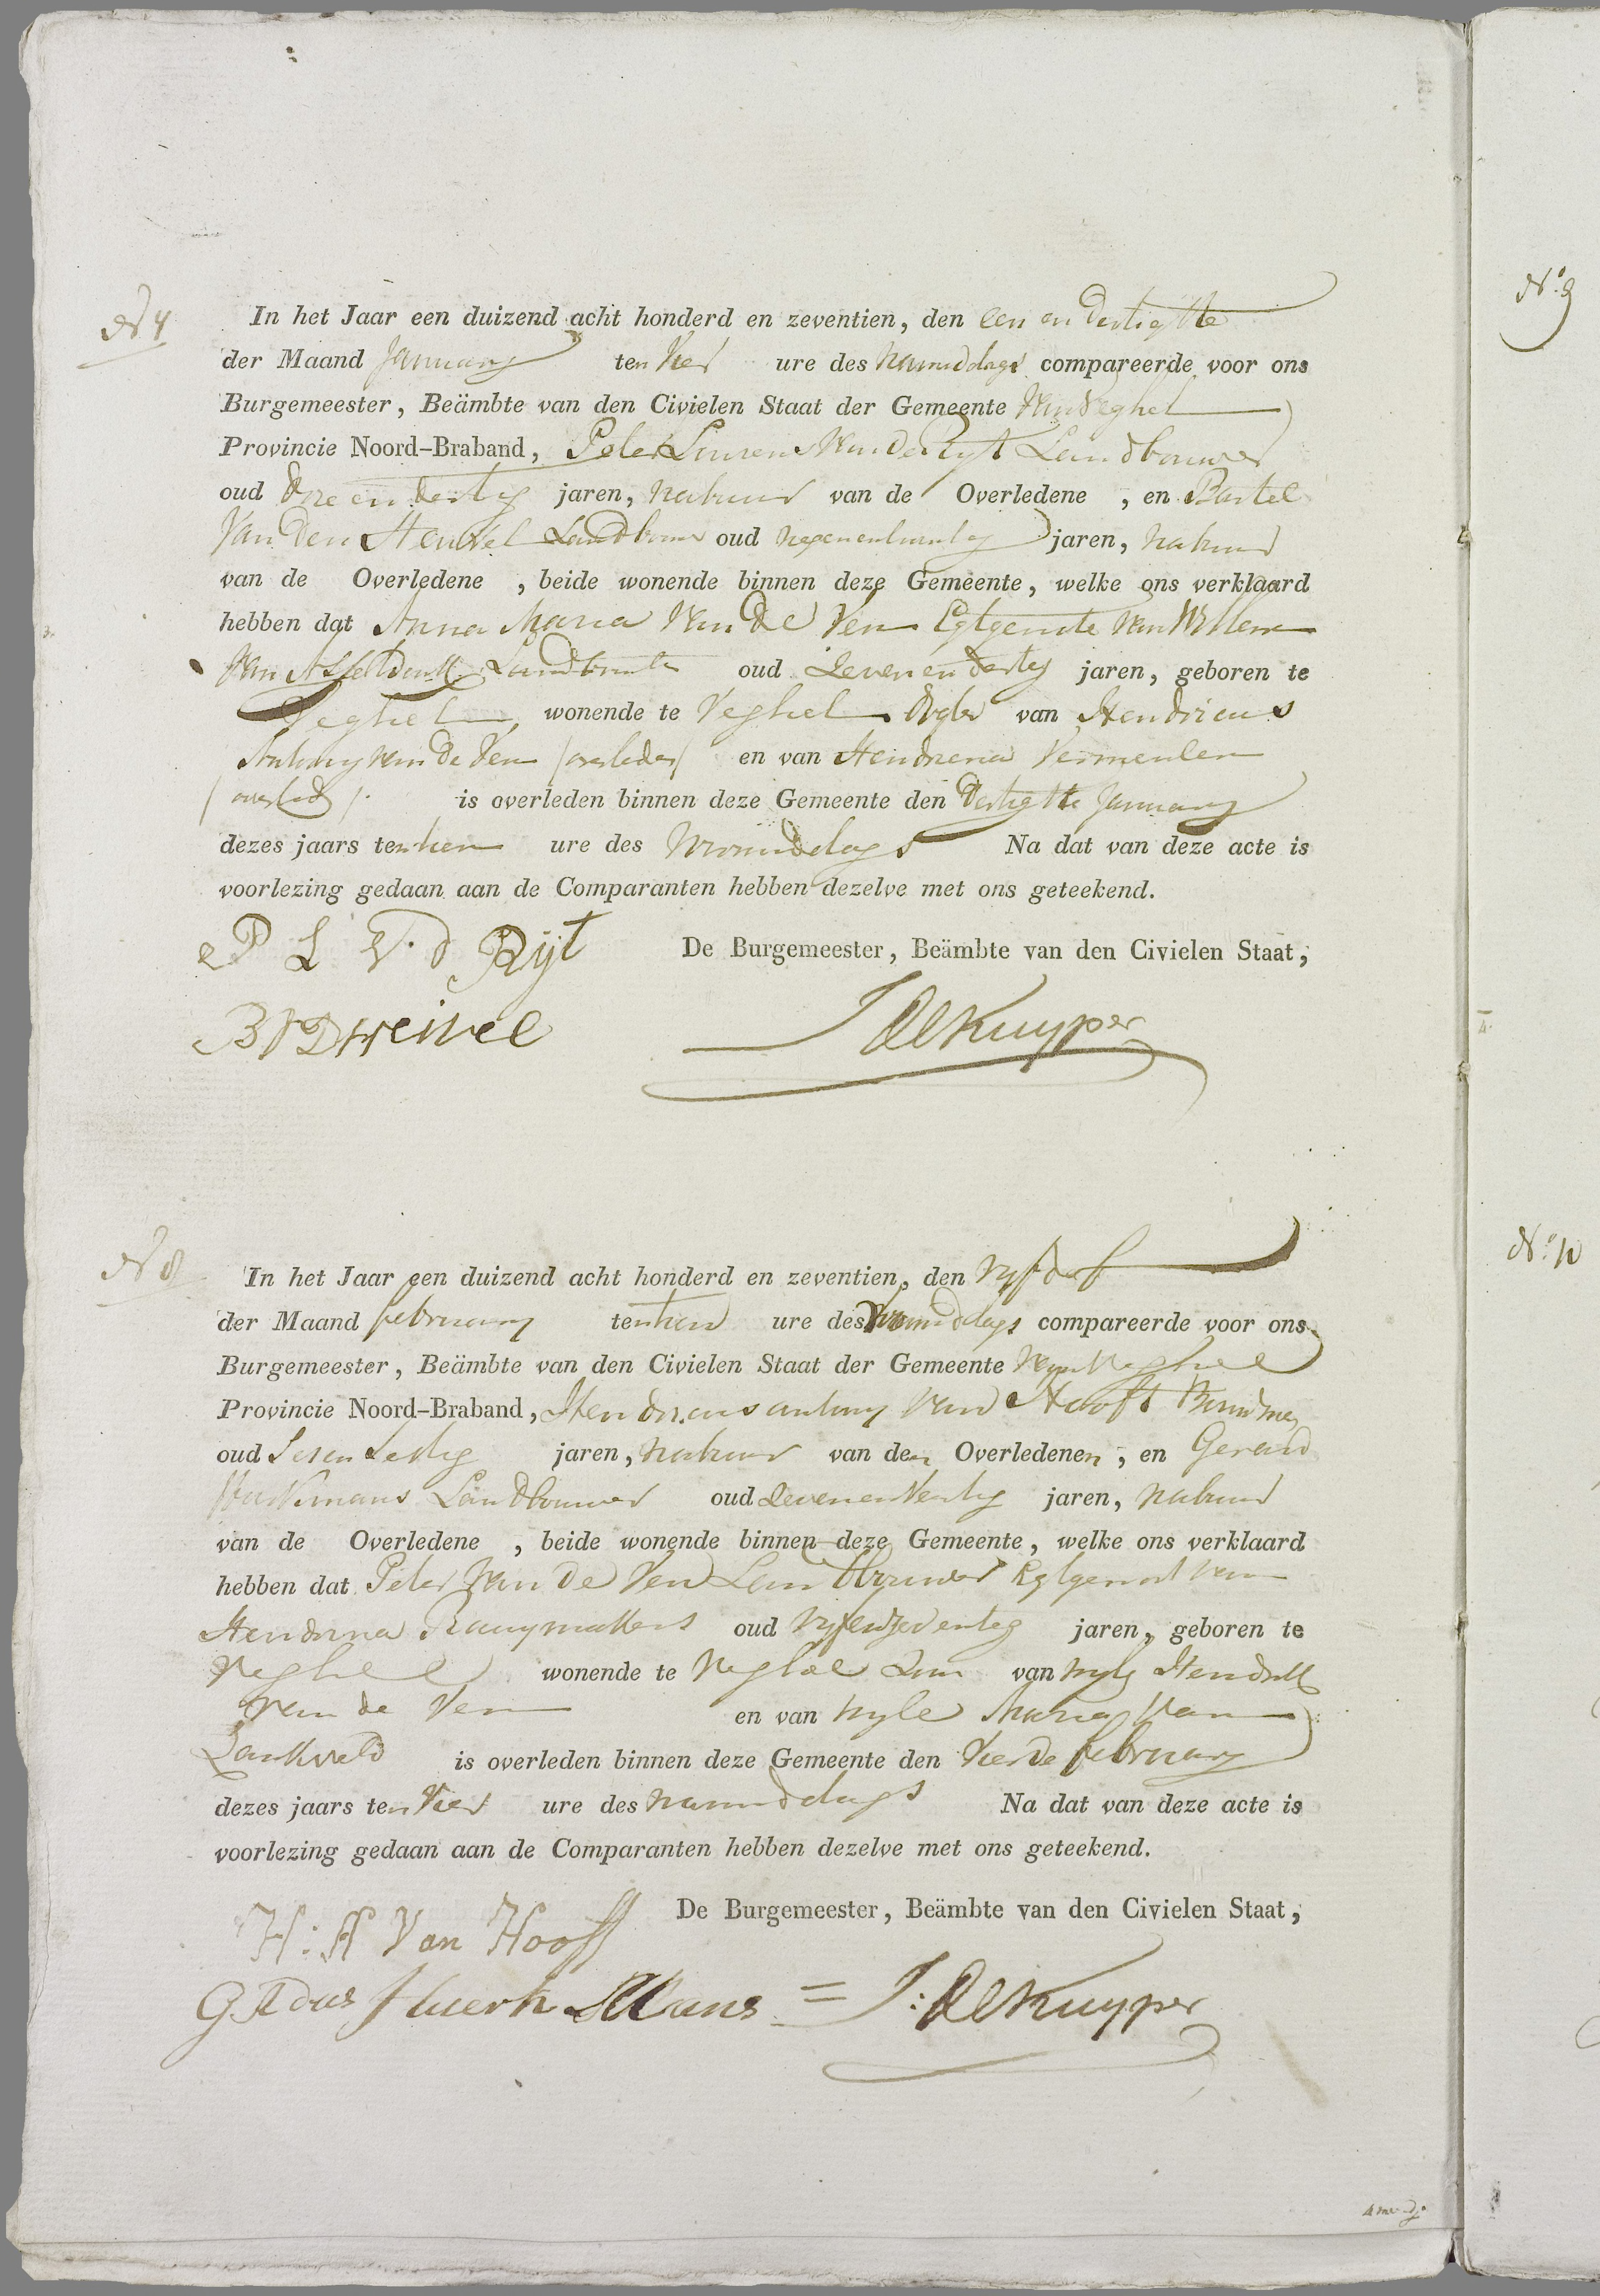 N 7
In het Jaar een duizend acht honderd en zeventien, den een en dertigste
der Maand January ten vier ure des namiddags compareerde voor ons
Burgemeester, Beämbte van den Civielen Staat der Gemeente van Veghel
Provincie Noord-Braband, Peter Linsen van de Ryt Landbouwer
oud drie en dertig jaren, nabuur van de Overledene , en Bartel
van den Heuvel Landbouwer oud negenentwintig jaren, nabuur
van de Overledene , beide wonende binnen deze Gemeente, welke ons verklaard
hebben dat Anna Maria van de Ven Egtgenote van Willem
van Asseldonk oud zevenendertig jaren, geboren te
Veghel, wonende te Veghel dogter van Hendricus
Antony van de Ven /overleden/ en van Hendriena Vermeulen
/overleden/. is overleden binnen deze Gemeente den dertigste January
dezes jaars ten tien ure des voormiddags Na dat van deze acte is
voorlezing gedaan aan de Comparanten hebben dezelve met ons geteekend.
P L V. d Rijt
De Burgemeester, Beämbte van den Civielen Staat,
B V D Heuvel
J De Kuyper
N 8
In het Jaar een duizend acht honderd en zeventien, den vyfde
der Maand february ten tien ure des voormiddags compareerde voor ons
Burgemeester, Beämbte van den Civielen Staat der Gemeente van Veghel
Provincie Noord-Braband, Hendricus antony van Hooft
oud jaren, nabuur van den Overledenen, en Gerard
Landbouwer oud zevenenveertig jaren, nabuur
van de Overledene , beide wonende binnen deze Gemeente, welke ons verklaard
hebben dat Peter van de Ven Landbouwer Egtgenoot van
Hendrina Raaymakers oud vyfenzeventig jaren, geboren te
Veghel wonende te Veghel zoon van wyle Hendrik
van de Ven en van wyle Maria van
Lankveld is overleden binnen deze Gemeente den vierde february
dezes jaars ten vier ure des namiddags Na dat van deze acte is
voorlezing gedaan aan de Comparanten hebben dezelve met ons geteekend.
De Burgemeester, Beämbte van den Civielen Staat,
H: A Van Hooff
J: De Kuyper
N:º 9
N:º 10